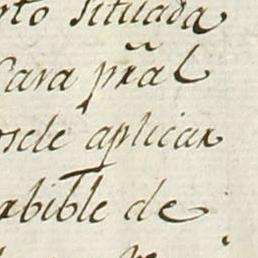 rto situada
Cava pñal
osele aplicar
rbible de